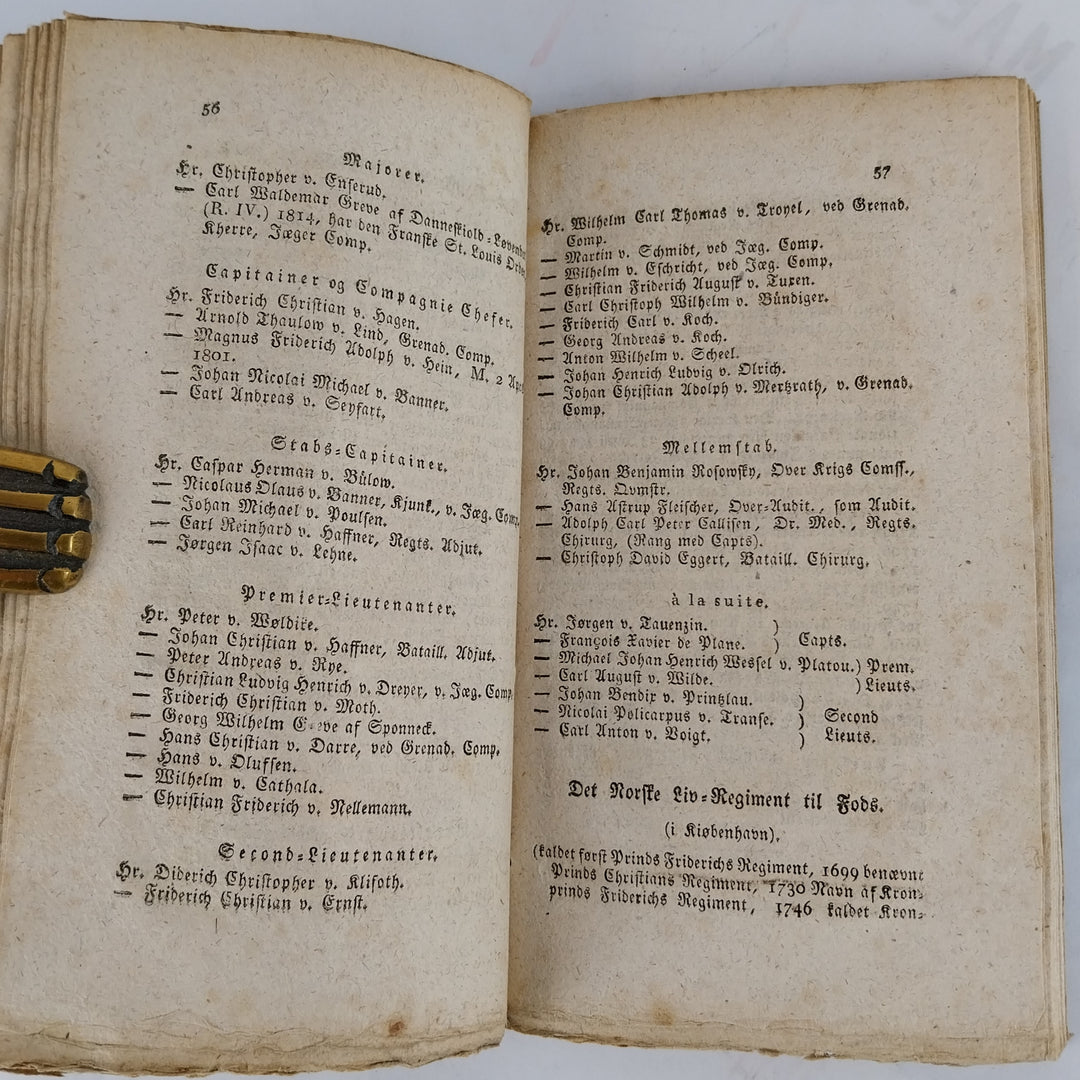 56
Majorer.
Hr. Christopher v. Enserud.
— Carl Waldemar Greve af Danneskiold-Løvend
(R. IV.) 1814, har den Franske St. Louis Ord
Kherre, Jæger Comp.
Capitainer og Compagnie Chefer.
Hr. Friderich Christian v. Hagen.
— Arnold Thaulow v. Lind, Grenad. Comp.
— Magnus Friderich Adolph v. Hein, M. 2 Ap
1801.
— Johan Nicolai Michael v. Banner.
— Carl Andreas v. Seyfart.
Stabs-Capitainer.
Hr. Caspar Herman v. Bülow.
— Nicolaus Olaus v. Banner, Kjunk., v. Jæg. Comp.
— Johan Michael v. Poulsen.
— Carl Reinhard v. Haffner, Regts. Adjut.
— Jørgen Isaac v. Lehne.
Premier-Lieutenanter.
Hr. Peter v. Wøldike.
— Johan Christian v. Haffner, Bataill. Adjut.
— Peter Andreas v. Rye.
— Christian Ludvig Henrich v. Dreyer, v. Jæg. Comp
— Friderich Christian v. Moth.
— Georg Wilhelm Greve af Sponneck.
— Hans Christian v. Darre, ved Grenad. Comp.
— Hans v. Olufsen.
— Wilhelm v. Cathala.
— Christian Friderich v. Nellemann.
Second-Lieutenanter.
Hr. Diderich Christopher v. Klifoth.
— Friderich Christian v. Ernst.
57
Hr. Wilhelm Carl Thomas v. Troyel, ved Grenad.
Comp.
— Martin v. Schmidt, ved Jæg. Comp.
— Wilhelm v. Eschricht, ved Jæg. Comp.
— Christian Friderich August v. Tuxen.
— Carl Christoph Wilhelm v. Bündiger.
— Friderich Carl v. Koch.
— Georg Andreas v. Koch.
— Anton Wilhelm v. Scheel.
— Johan Henrich Ludvig v. Olrich.
— Johan Christian Adolph v. Mertzrath, v. Grenad.
Comp.
Mellemstab.
Hr. Johan Benjamin Rosowsky, Over Krigs Comss.,
Regts. Qvmstr.
— Hans Astrup Fleischer, Over-Audit., som Audit.
— Adolph Carl Peter Callisen, Dr. Med., Regts.
Chirurg, (Rang med Capts).
— Christoph David Eggert, Bataill. Chirurg.
à la suite.
Hr. Jørgen v. Tauenzin. )
— François Xavier de Plane. ) Capts.
— Michael Johan Henrich Wessel v. Platou.) Prem.
— Carl August v. Wilde. ) Lieuts.
— Johan Bendix v. Printzlau. )
— Nicolai Policarpus v. Transe. ) Second
— Carl Anton v. Voigt. ) Lieuts.
Det Norske Liv-Regiment til Fods.
(i Kiøbenhavn).
(kaldet først Prinds Friderichs Regiment, 1699 benævnt
Prinds Christians Regiment, 1730 Navn af Kron-
prinds Friderichs Regiment, 1746 kaldet Kron-